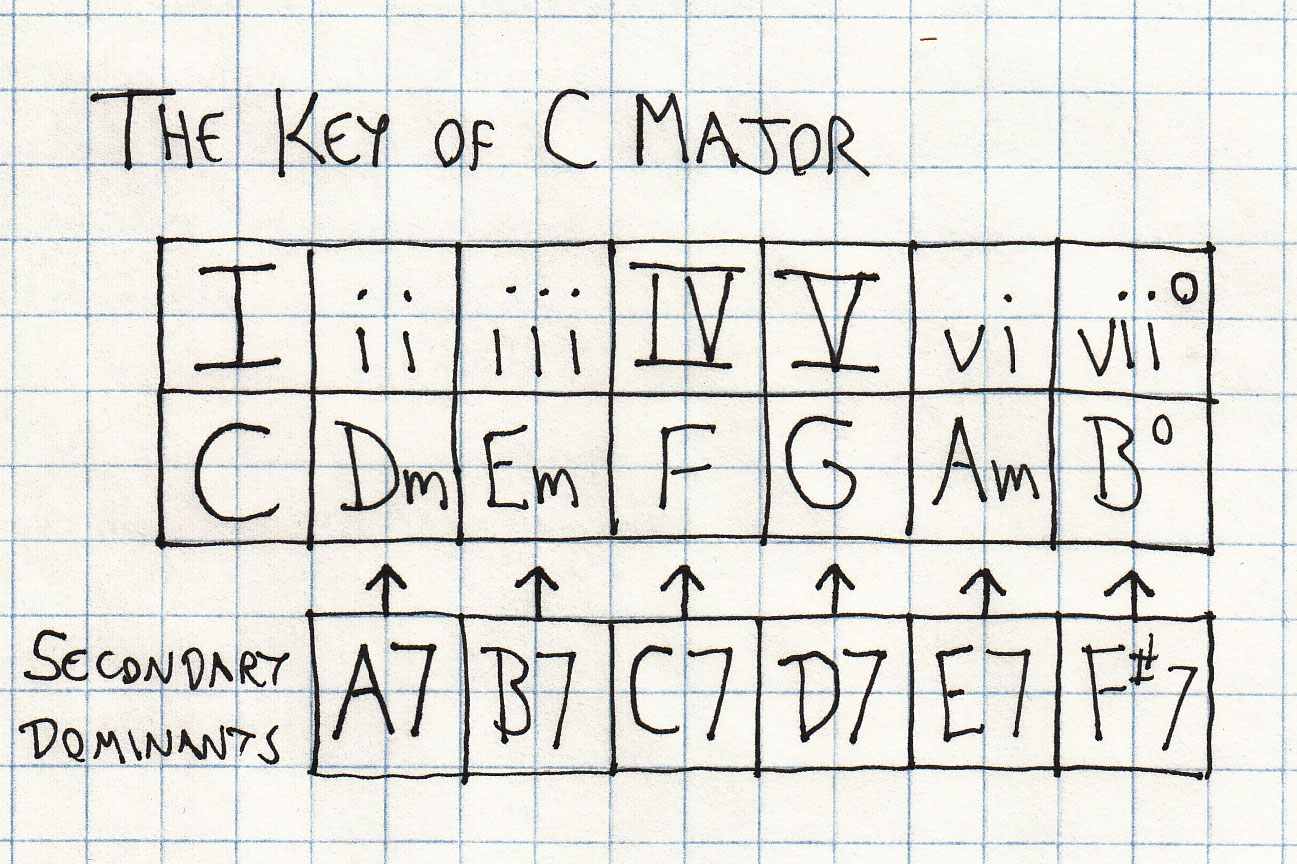 THE KEY OF C MAJOR
I ii iii IV V vi vii°
C Dm Em F G Am B°
SECONDARY
DOMINANTS
A7 B7 C7 D7 E7 F#7